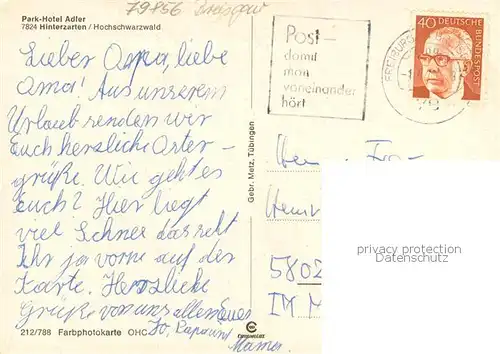 79856 Breisgau
Park-Hotel Adler
7824 Hinterzarten / Hochschwarzwald
Lieber Oopa, liebe
Oma! Aus unserem
Urlaub senden wir
Euch herzliche Oster-
grüße. Wie geht es
Euch? Hier liegt
viel Schnee das seht
Ihr ja vorne auf der
Karte. Herzliche
Grüße von uns allen Eure
Papa und
Mama
212/788 Farbphotokarte OHC
Gebr. Metz, Tübingen
Post –
damit
man
voneinander
hört
FREIBURG
40 DEUTSCHE
BUNDESPOST
5802
privacy protection
Datenschutz